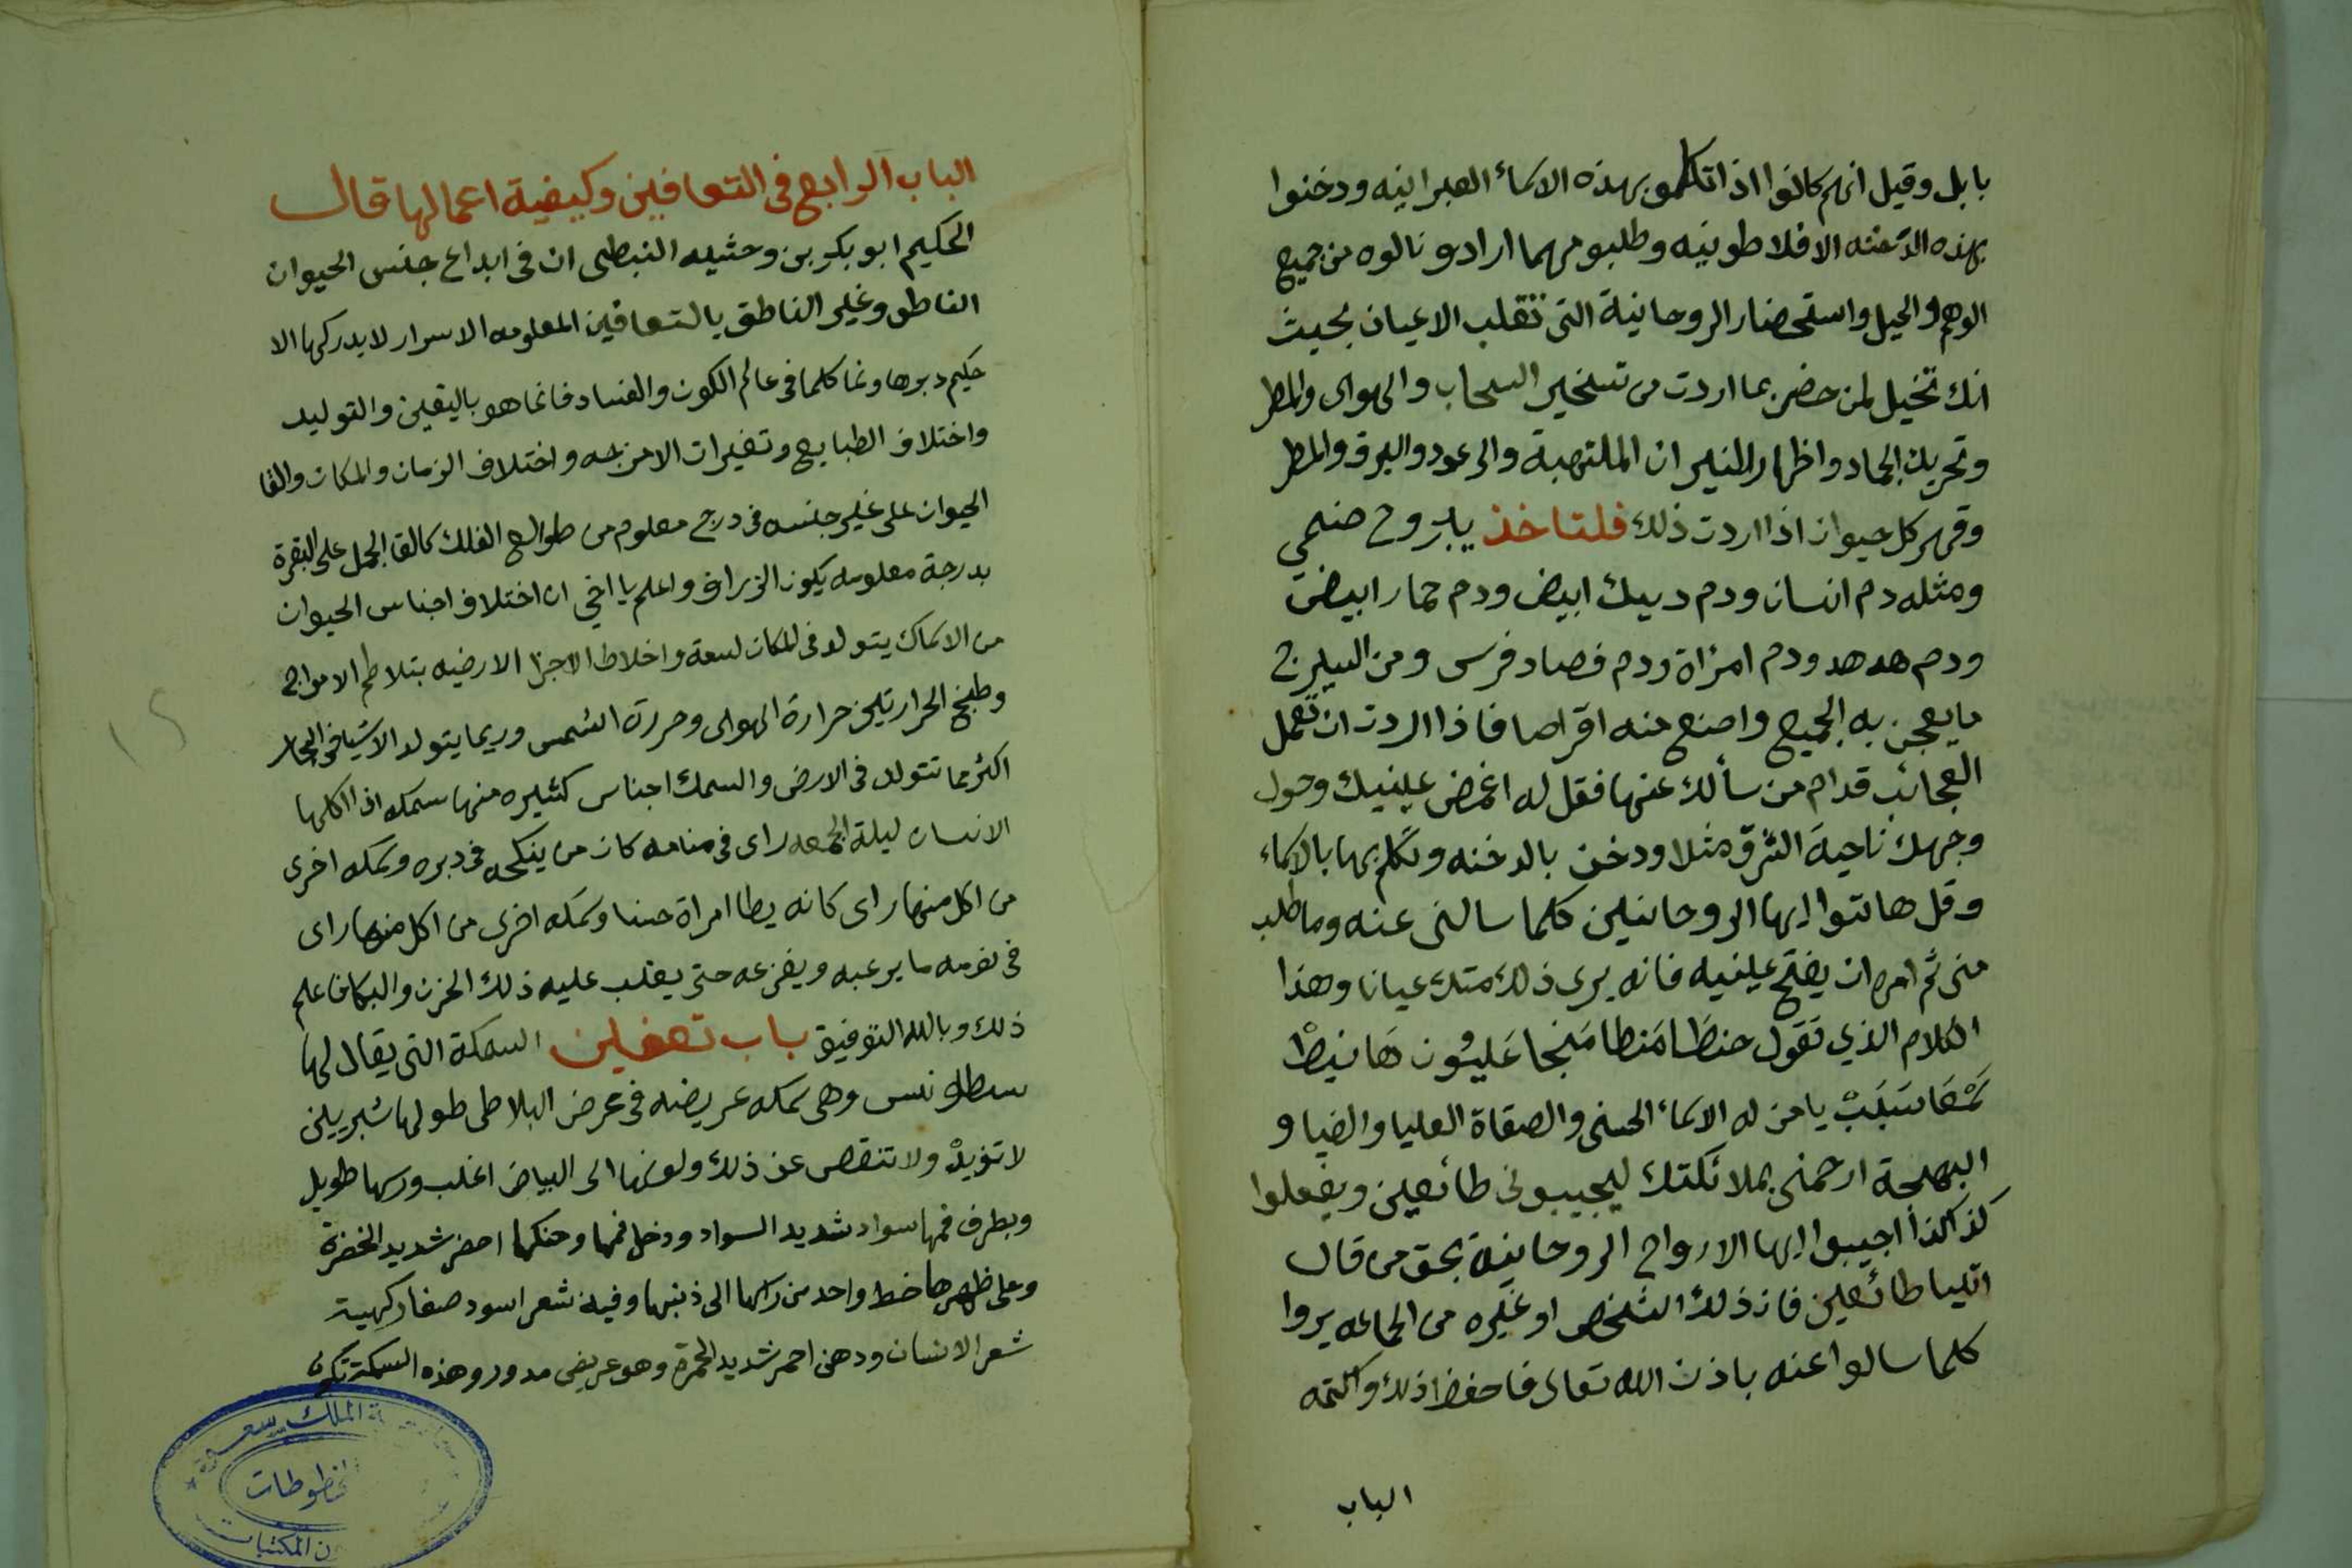 بابل وقيل انهم كانوا اذا تكلمو بهذه الاسماء العبرانيه ودخنوا
بهذه الدخنه الافلاطونيه وطلبو مهما ارادو نالوه من جميع
الوهم والحيل واستحضار الروحانية التى تقلب الاعيان بحيث
انك تخيل لمن حضر بما اردت من تسخير السحاب والهوى والمطر
وتحريك الجماد واظهار النيران الملتهبة والرعود والبرق والمطر
وقهر كل حيوان اذا اردت ذلك فلتاخذ يبروح صنمي
ومثله دم انسان ودم ديك ابيض ودم حمار ابيض
ودم هدهد ودم امراة ودم فصاد فرس ومن البيرج
ما يعجن به الجميع واصنع منه اقراصا فاذا اردت ان تعمل
العجائب قدام من سألك عنها فقل له اغمض عينيك وحول
وجهك ناحية الشرق مثلا ودخن بالدخنه وتكلم بها بالاسماء
وقل هاتوا ايها الروحانين كلما سالنى عنه وما طلب
منى ثم امره ان يفتح عينيه فانه يرى ذلك متك عيانا وهذا
الكلام الذي تقول حنطا منطا منجا عليون هانيط
يا من له الاسماء الحسنى والصفاة العليا والضيا و
البهجة ارحمنى بملائكتك ليجيبونى طائعين ويفعلوا
كذا كذا اجيبوا ايها الارواح الروحانية بحق من قال
اتليا طائعين فان ذلك الشخص او غيره من الجماعه يروا
كلما سالوا عنه باذن الله تعالى فاحفظ ذلك واكتمه
الباب
الباب الرابع فى التعافين وكيفية اعمالها قال
الحكيم ابو بكر بن وحشيه النبطى ان فى ابداع جنس الحيوان
الناطق وغير الناطق بالتعافين المعلومه الاسرار لا يدركها الا
حكيم دبرها ونما كلما فى عالم الكون والفساد فانما هو باليقين والتوليد
واختلاف الطبايع وتغيرات الامزجه واختلاف الزمان والمكان والقا
الحيوان على غير جنسه فى درج معلوم من طوالع الفلك كالقا الجمل على البقرة
بدرجة معلومه يكون الزراف واعلم يا اخي ان اختلاف اجناس الحيوان
من الاسماك يتولد فى المكان لسعة واخلاط الاجزا الارضيه بتلاطم الامواج
وطبخ الحرارتين حرارة الهوى وحررة الشمس وربما يتولد الاشيا فى البحار
اكثر مما تتولد فى الارض والسمك اجناس كثيره منها سمكه اذا اكلها
الانسان ليلة الجمعه راى فى منامه كان من ينكحه فى دبره وسمكه اخرى
من اكل منها راى كانه يطا امراة حسنا وسمكه اخرى من اكل منها راى
فى نومه ما يرعبه ويفزعه حتى يغلب عليه ذلك الحزن والبكا فاعلم
ذلك وبالله التوفيق باب تعفين السمكة التى يقال لها
سطلونس وهى سمكه عريضه فى عرض البلاطى طولها شبريين
لا تزيد ولا تنقص عن ذلك ولونها الى البياض اغلب وراسها طويل
وبطرف فمها سواد شديد السواد ودخل فمها وحنكها احضر شديد الخضرة
وعلى ظهرها خط واحد من راسها الى ذنبها وفيه شعر اسود صغار كهية
شعر الانسان ودهن احمر شديد الحمرة وهو عريض مدور وهذه السمكة تكون
الملك سعود
مخطوطات
المكتبات